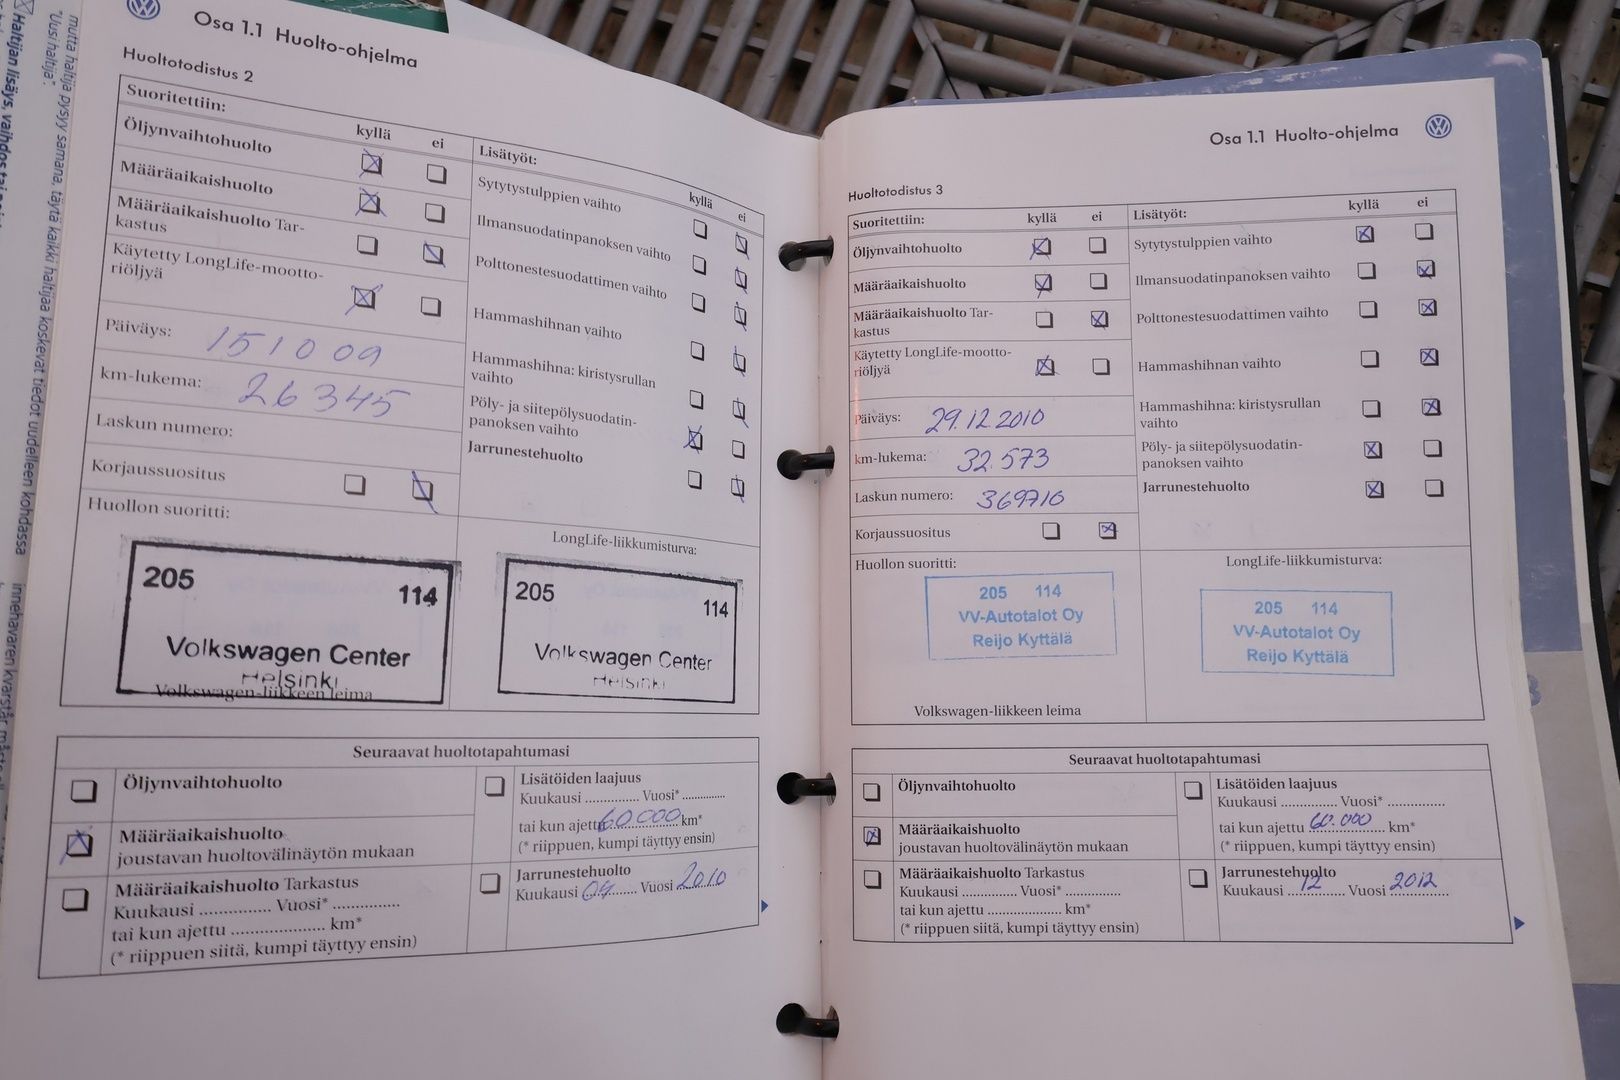 mutta haltija pysyy samana, täytä kaikki haltijaa koskevat tiedot uudelleen kohdassa
"Uusi haltija".
Osa 1.1 Huolto-ohjelma
Huoltotodistus 2
Suoritettiin:
kyllä ei
Öljynvaihtohuolto
Määräaikaishuolto
Määräaikaishuolto Tar-
kastus
Käytetty LongLife-mootto-
riöljyä
Päiväys: 15 10 09
km-lukema: 26 345
Laskun numero:
Korjaussuositus
Huollon suoritti:
205 114
Volkswagen Center
Helsinki
Volkswagen-liikkeen leima
Lisätyöt:
kyllä ei
Sytytystulppien vaihto
Ilmansuodatinpanoksen vaihto
Polttonestesuodattimen vaihto
Hammashihnan vaihto
Hammashihna: kiristysrullan
vaihto
Pöly- ja siitepölysuodatin-
panoksen vaihto
Jarrunestehuolto
LongLife-liikkumisturva:
205 114
Volkswagen Center
Helsinki
Seuraavat huoltotapahtumasi
Öljynvaihtohuolto
Määräaikaishuolto
joustavan huoltovälinäytön mukaan
Määräaikaishuolto Tarkastus
Kuukausi ............... Vuosi* ..............
tai kun ajettu .................... km*
(* riippuen siitä, kumpi täyttyy ensin)
Lisätöiden laajuus
Kuukausi .............. Vuosi* ...........
tai kun ajettu 60000 km*
(* riippuen, kumpi täyttyy ensin)
Jarrunestehuolto
Kuukausi 04 Vuosi 2010
Osa 1.1 Huolto-ohjelma
Huoltotodistus 3
Suoritettiin:
kyllä ei
Öljynvaihtohuolto
Määräaikaishuolto
Määräaikaishuolto Tar-
kastus
Käytetty LongLife-mootto-
riöljyä
Päiväys: 29.12.2010
km-lukema: 32.573
Laskun numero: 369710
Korjaussuositus
Huollon suoritti:
205 114
VV-Autotalot Oy
Reijo Kyttälä
Volkswagen-liikkeen leima
Lisätyöt:
kyllä ei
Sytytystulppien vaihto
Ilmansuodatinpanoksen vaihto
Polttonestesuodattimen vaihto
Hammashihnan vaihto
Hammashihna: kiristysrullan
vaihto
Pöly- ja siitepölysuodatin-
panoksen vaihto
Jarrunestehuolto
LongLife-liikkumisturva:
205 114
VV-Autotalot Oy
Reijo Kyttälä
Seuraavat huoltotapahtumasi
Öljynvaihtohuolto
Määräaikaishuolto
joustavan huoltovälinäytön mukaan
Määräaikaishuolto Tarkastus
Kuukausi .............. Vuosi* ..............
tai kun ajettu .................... km*
(* riippuen siitä, kumpi täyttyy ensin)
Lisätöiden laajuus
Kuukausi .............. Vuosi* ..............
tai kun ajettu 60.000 km*
(* riippuen, kumpi täyttyy ensin)
Jarrunestehuolto
Kuukausi 12 Vuosi 2012